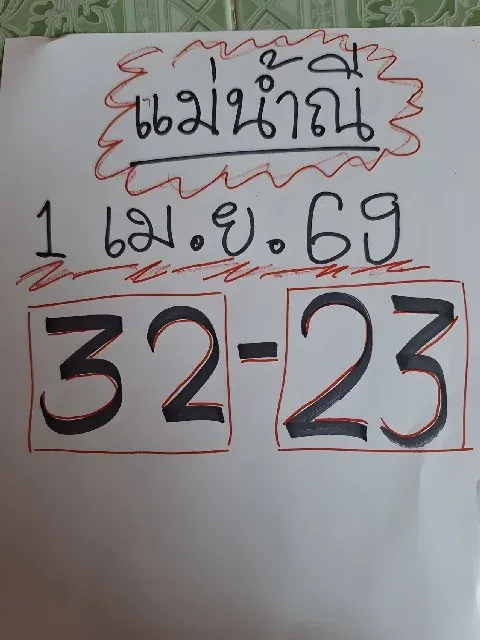 แม่น้ำณี
1 เม.ย.69
32-23